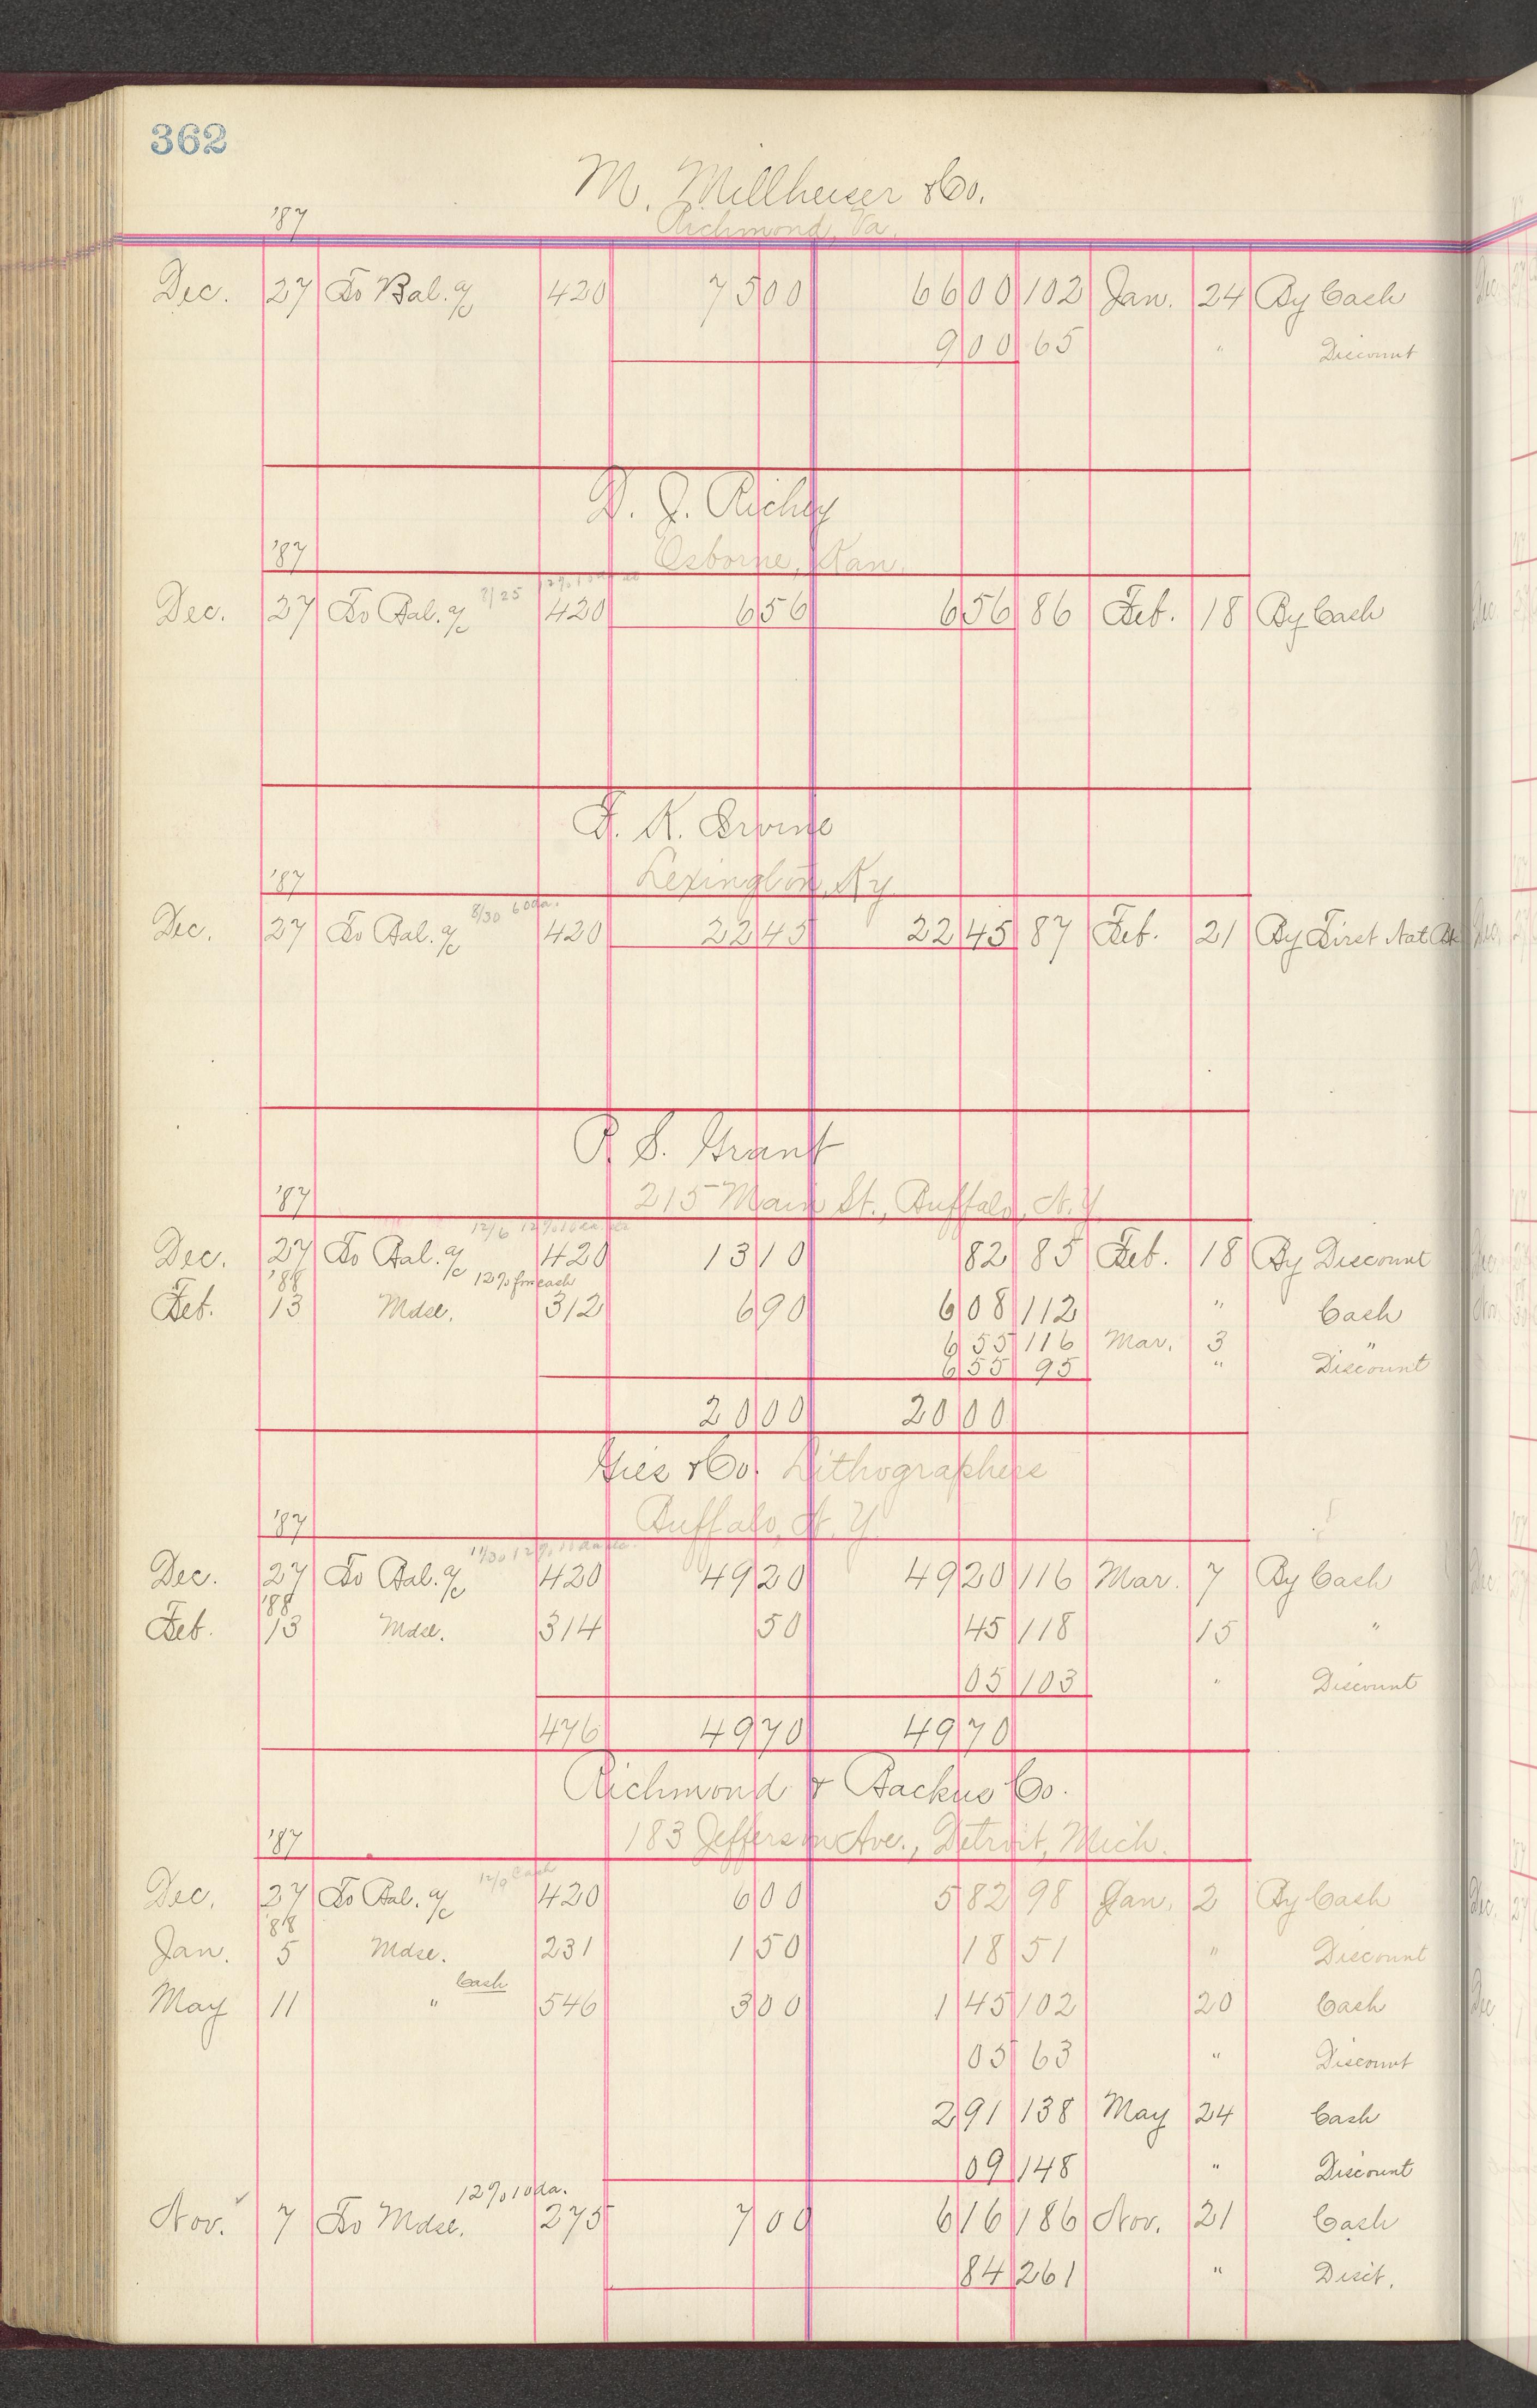 362
M. Millheiser & Co.
'87 Richmond, Va.
Dec. 27 To Bal. a/c 420 75 00 66 00 102 Jan. 24 By Cash
9 00 65 " Discount
D. J. Richey
'87 Osborne, Kan.
8/25
Dec. 27 To Bal. a/c 420 6 56 6 56 86 Feb. 18 By Cash
Lexington, Ky
'87
8/30 60 da.
Dec. 27 To Bal. a/c 420 22 45 22 45 87 Feb. 21 By First Nat
R. S. Grant
'87 215 Main St., Buffalo, N.Y.
12/6 12% 10 da.
Dec. 27 To Bal. a/c 420 13 10 82 85 Feb. 18 By Discount
'88 12% for cash
Feb. 13 Mdse. 312 6 90 6 08 112 " Cash
6 55 116 Mar. 3 "
6 55 95 " Discount
20 00 20 00
Gies & Co. Lithographers
'87 Buffalo, N.Y.
11/30 12%
Dec. 27 To Bal. a/c 420 49 20 49 20 116 Mar. 7 By Cash
'88
Feb. 13 Mdse. 314 50 45 118 15 "
05 103 " Discount
476 49 70 49 70
Richmond & Backus Co.
'87 183 Jefferson Ave., Detroit, Mich.
12/9 Cash
Dec. 27 To Bal. a/c 420 6 00 5 82 98 Jan. 2 By Cash
'88
Jan. 5 Mdse. 231 1 50 18 51 " Discount
Cash
May 11 " 546 3 00 1 45 102 20 Cash
05 63 " Discount
2 91 138 May 24 Cash
09 148 " Discount
12% 10 da.
Nov. 7 To Mdse. 275 7 00 6 16 186 Nov. 21 Cash
84 261 " Disct.